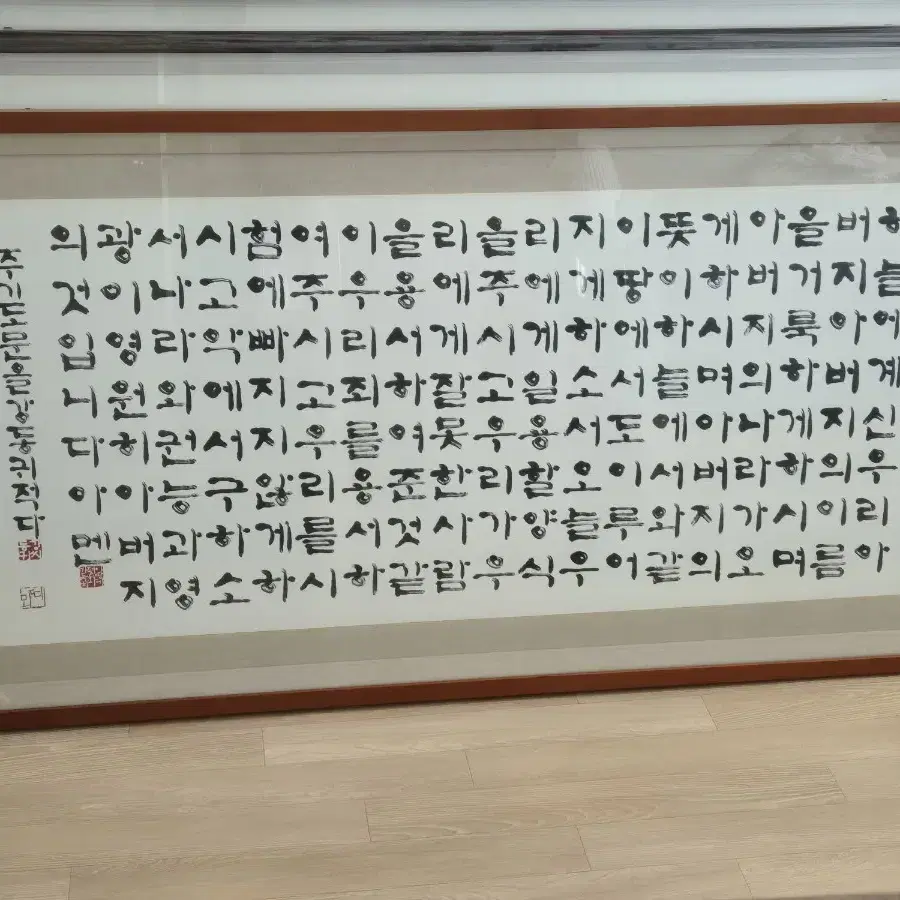 하늘에계신우리아
버지아버지의이름
을거룩하게하시며
아버지의나라가오
게하시며아버지의
뜻이하늘에서와같
이땅에서도이루어
지게하소서오늘우
리에게일용할양식
을주시고우리가우
리에게잘못한사람
을용서하여준것같
이우리죄를용서하
여주시고우리를시
험에빠지지않게하
시고악에서구하소
서나라와권능과영
광이영원히아버지
의것입니다아멘